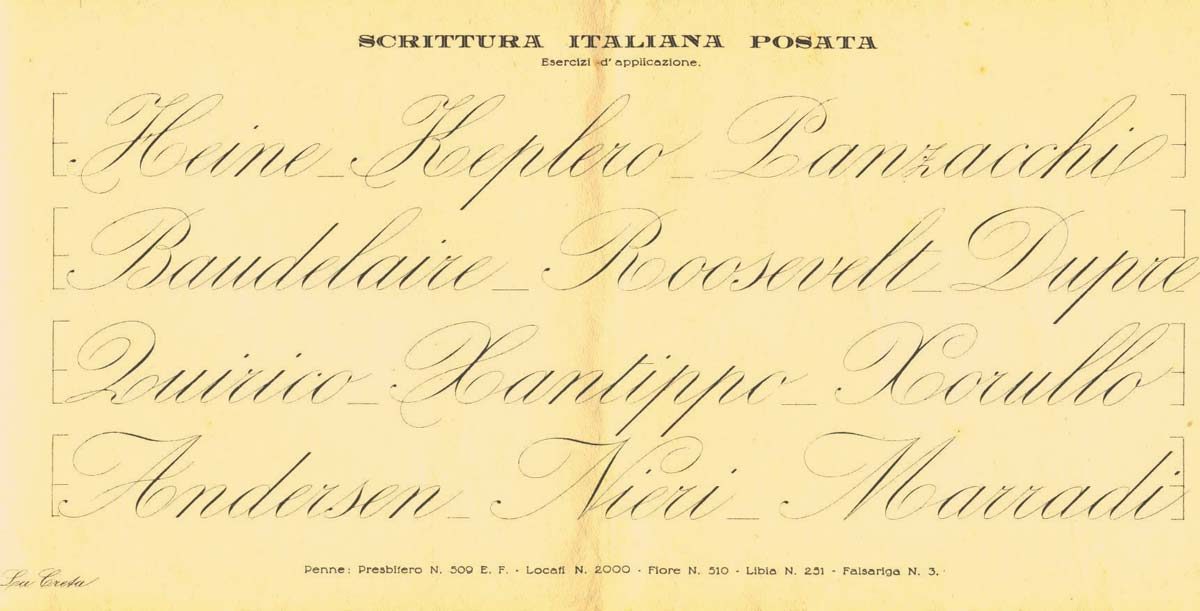 SCRITTURA ITALIANA POSATA
Esercizi d'applicazione.
Heine _ Keplero _ Panzacchi
Baudelaire _ Roosevelt _ Dupre
Quirico _ Xantippo _ Xorullo
Andersen _ Nieri _ Marradi
Penne: Presbitero N. 509 E. F. - Locati N. 2000 - Fiore N. 510 - Libia N. 251 - Falsariga N. 3.
La Creta